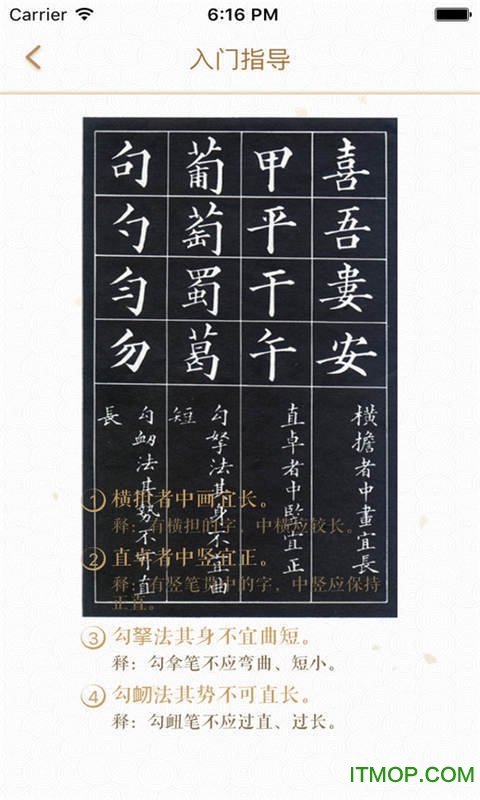 Carrier 6:16 PM
入门指导
喜吾婁安
甲平干午
葡萄蜀葛
句勺勻勿
橫擔者中畫宜長
直卓者中竪宜正
勾拏法其身不宜曲
短
勾衂法其勢不可直
長
① 横担者中画宜长。
释：有横担的字，中横应较长。
② 直卓者中竖宜正。
释：有竖笔贯中的字，中竖应保持
正直。
③ 勾拏法其身不宜曲短。
释：勾拿笔不应弯曲、短小。
④ 勾衂法其势不可直长。
释：勾衄笔不应过直、过长。
ITMOP.com